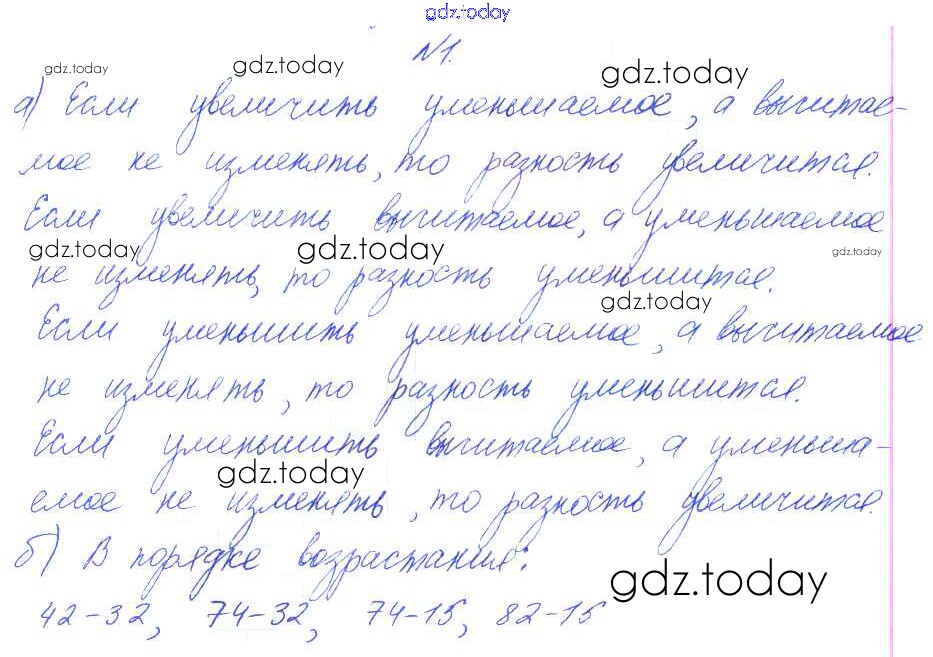 gdz.today
N1.
gdz.today gdz.today gdz.today
а) Если увеличить уменьшаемое, а вычитае-
мое не изменять, то разность увеличится.
Если увеличить вычитаемое, а уменьшаемое
gdz.today gdz.today gdz.today
не изменять, то разность уменьшится.
gdz.today
Если уменьшить уменьшаемое, а вычитаемое
не изменять, то разность уменьшится.
Если уменьшить вычитаемое, а уменьша-
gdz.today
емое не изменять, то разность увеличится.
б) В порядке возрастания:
gdz.today
42-32, 74-32, 74-15, 82-15